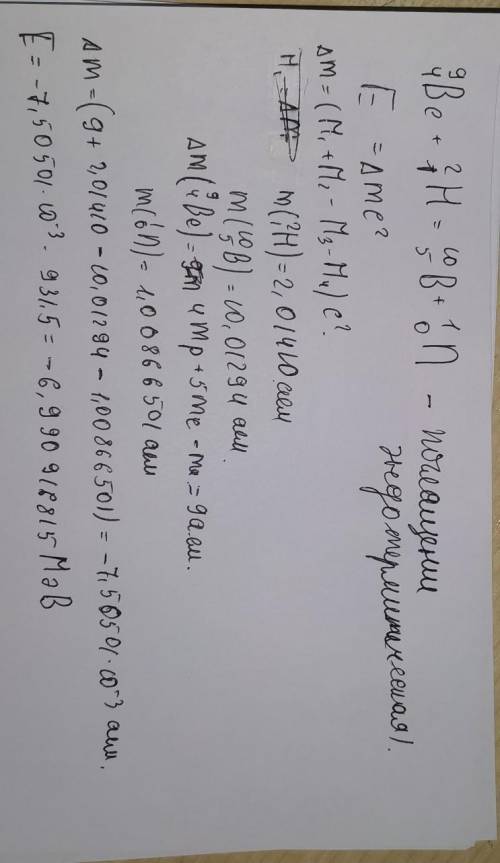 ⁹₄Be + ²₁H = ¹⁰₅B + ¹₀n – поглощении
эндотермическая).
E = Δmc²
Δm = (M₁ + M₂ - M₃ - M₄) c².
m(²₁H) = 2,01410 аем
m(¹⁰₅B) = 10,01294 аем.
Δm(⁹₄Be) = 4mp + 5me - mя = 9 а.ем.
m(¹₀n) = 1,00866501 аем
Δm = (9 + 2,01410 - 10,01294 - 1,00866501) = -7,50501·10⁻³ аем.
E = -7,50501·10⁻³ · 931,5 = -6,990918815 МэВ